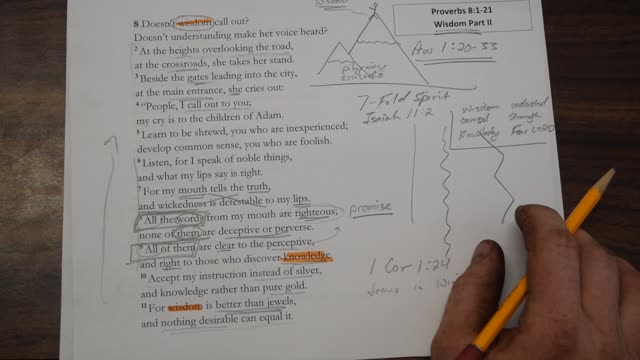 8 Doesn't wisdom call out?
Doesn't understanding make her voice heard?
2 At the heights overlooking the road,
at the crossroads, she takes her stand.
3 Beside the gates leading into the city,
at the main entrance, she cries out:
4 "People, I call out to you;
my cry is to the children of Adam.
5 Learn to be shrewd, you who are inexperienced;
develop common sense, you who are foolish.
6 Listen, for I speak of noble things,
and what my lips say is right.
7 For my mouth tells the truth,
and wickedness is detestable to my lips.
8 All the words from my mouth are righteous;
none of them are deceptive or perverse.
9 All of them are clear to the perceptive,
and right to those who discover knowledge.
10 Accept my instruction instead of silver,
and knowledge rather than pure gold.
11 For wisdom is better than jewels,
and nothing desirable can equal it.
promise
wisdom
Proverbs 8:1-21
Wisdom Part II
1:20-33
7-Fold Spirit
Isaiah 11:2
wisdom understand
counsel strength
Knowledge Fear LORD
1 Cor 1:24
Jesus is